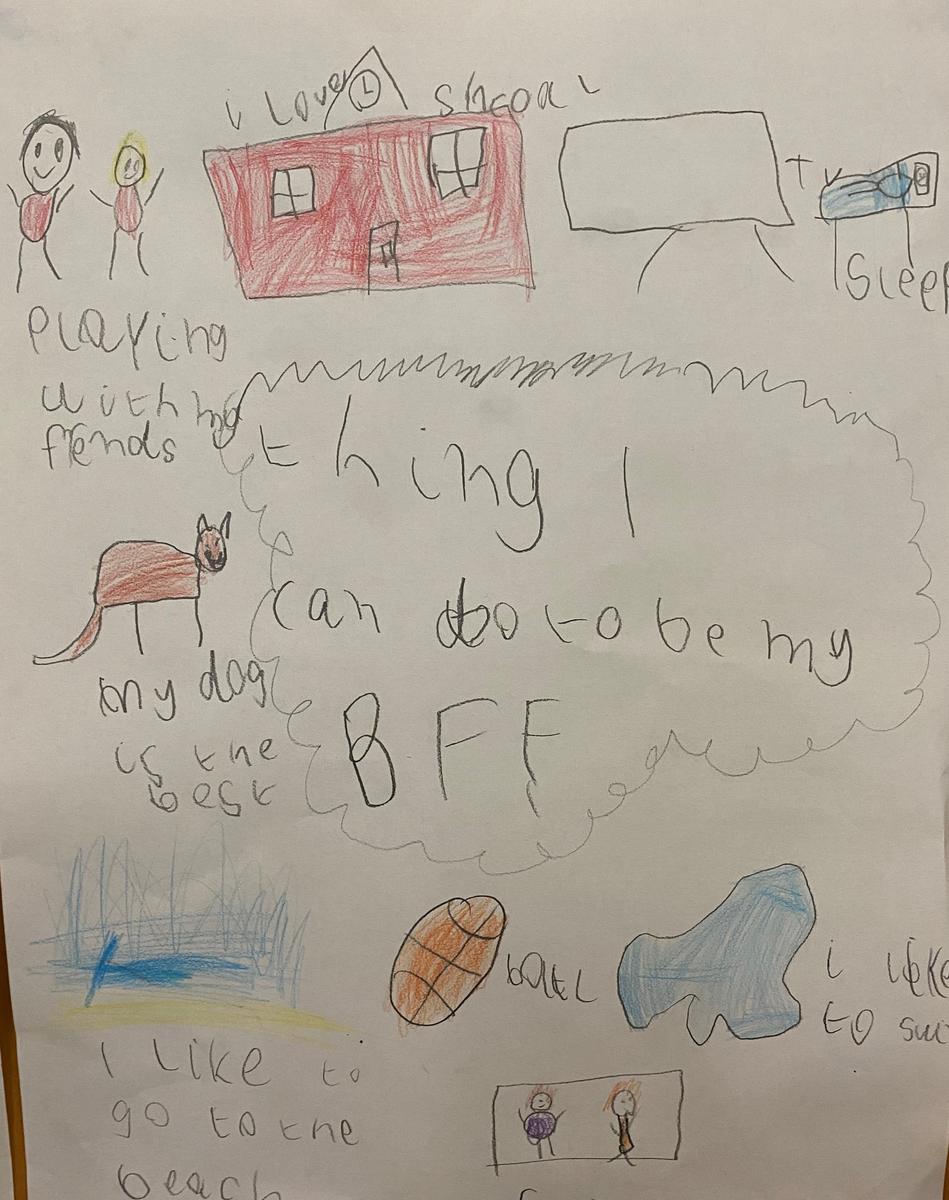 i Love shcoal
TV
Sleep
Playing
with my
friends
thing I
can do to be my
BFF
my dog
is the
best
ball
i like
to swi
I like to
go to the
beach